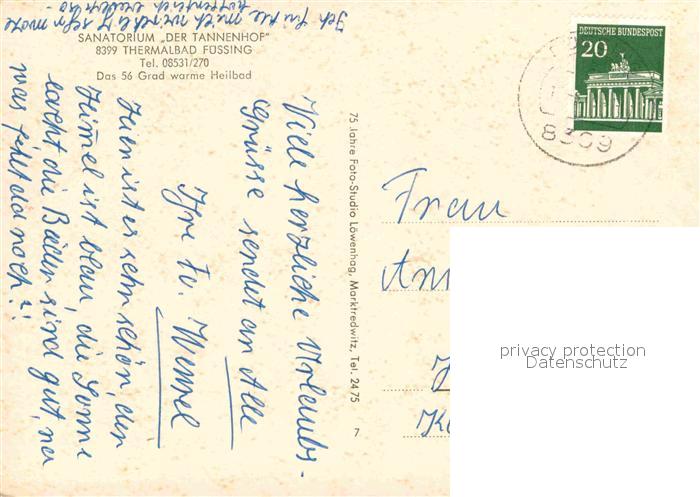 SANATORIUM „DER TANNENHOF"
8399 THERMALBAD FÜSSING
Tel. 08531/270
Das 56 Grad warme Heilbad
DEUTSCHE BUNDESPOST
20
Viele herzliche Urlaubs-
Grüsse sendet an Alle
Ihre Fr. Wenzel
Hier ist es sehr schön, der
Himmel ist blau, die Sonne
lacht die Bäder sind gut, na
was fehlt da noch?!
Ich fühle mich
sehr
75 Jahre Foto-Studio Löwenhag, Marktredwitz, Tel. 2475
7
Frau
privacy protection
Datenschutz